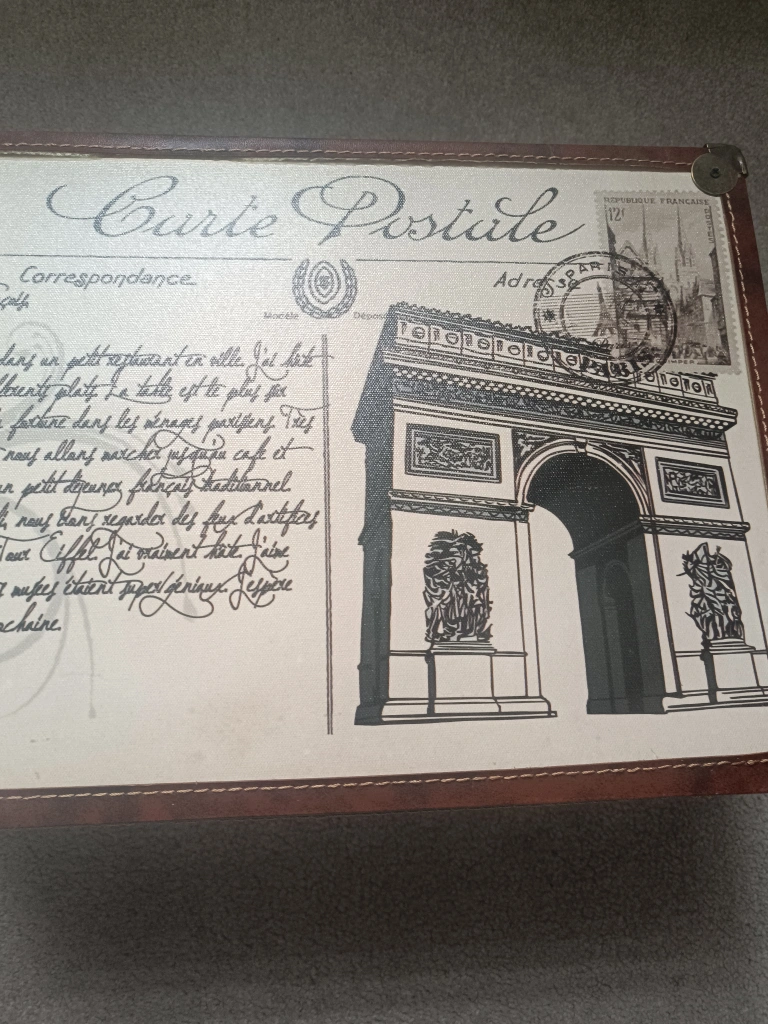 Carte Postale
RÉPUBLIQUE FRANÇAISE
12f
PARIS
Correspondance
Adresse
Modèle Déposé
dans un petit restaurant en ville. J'ai hâte
plats. La table est le plus
fortune dans les ménages parisiens. Très
nous allons marcher jusqu'au café et
un petit déjeuner français traditionnel.
nous irons regarder des feux d'artifices
Tour Eiffel. J'ai vraiment hâte. J'aime
musées étaient super géniaux. J'espère